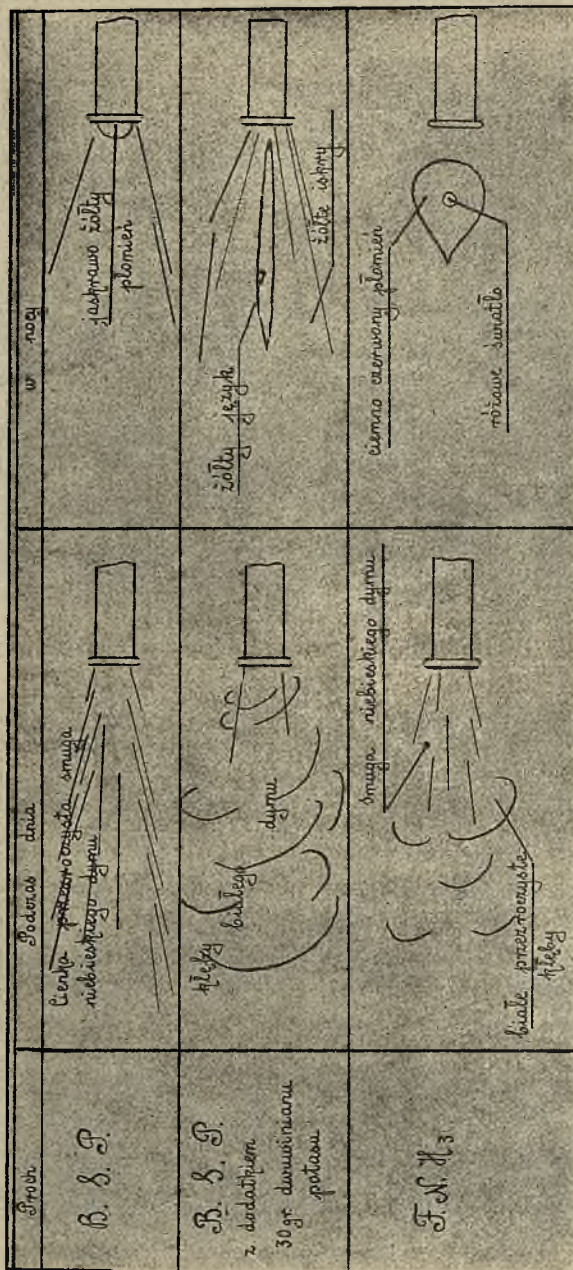 Proch
Podczas dnia
w nocy
B. S. P.
Cienka przezroczysta smuga
niebieskiego dymu
jaskrawo żółty
płomień
B. S. P.
z dodatkiem
30 gr. dwuwinianu
potasu
kłęby białego dymu
żółty język
żółte iskry
F. N. H3
smuga niebieskiego dymu
białe przezroczyste
kłęby
ciemno czerwony płomień
różawe światło